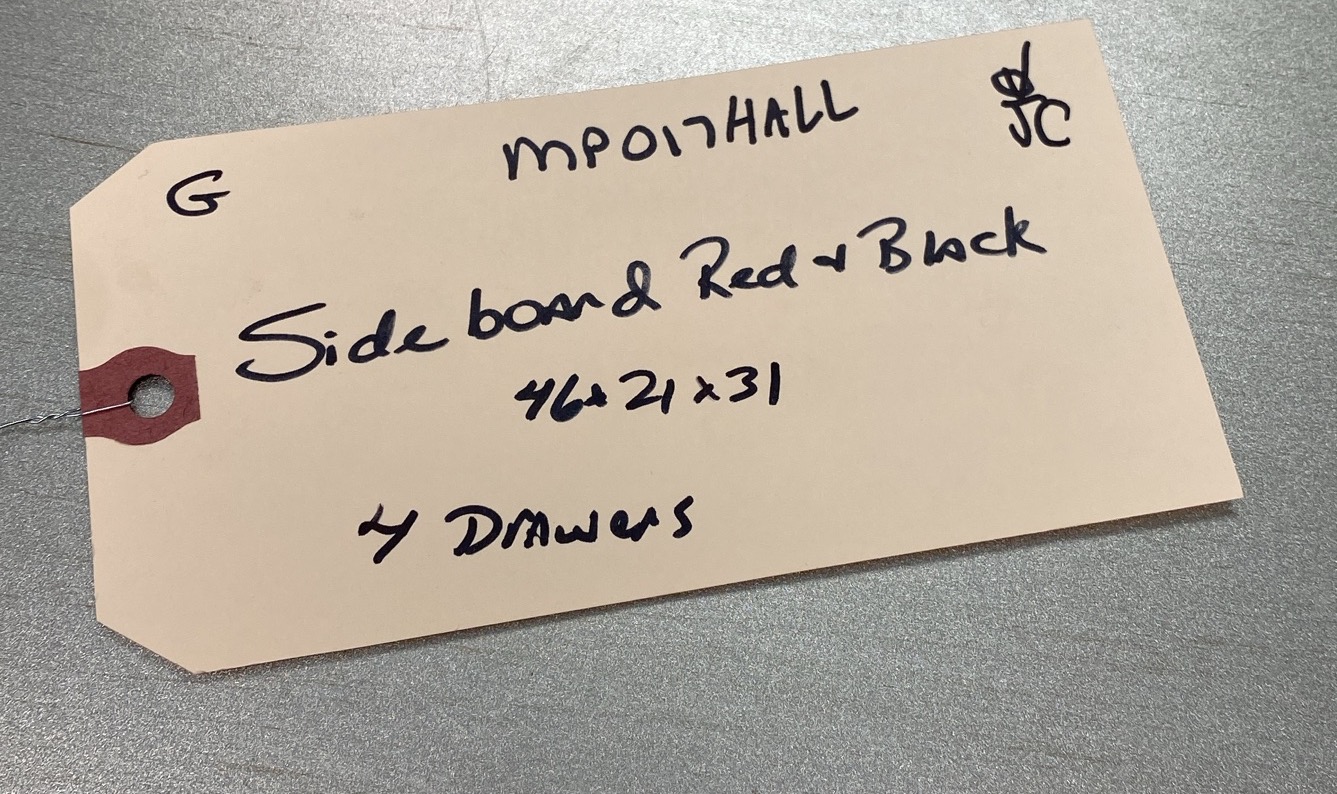 G
MP017HALL
JC
Sideboard Red & Black
46x21x31
4 Drawers